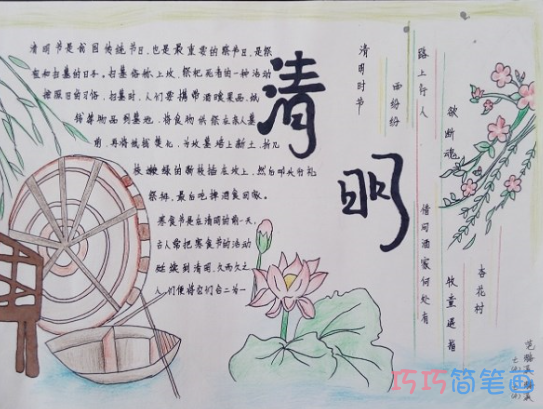 清明节是我国传统节日,也是最重要的祭节日,是祭
祖和扫墓的日子,扫墓俗称上坟,祭祀死者的一种活动
按照旧的习俗,扫墓时,人们要携带酒食果品,纸
钱等物品到墓地,将食物供祭在亲人墓
前,再将纸钱焚化,为坟墓培上新土,折几
枝嫩绿的新枝插在坟上,然后叩头行礼
祭拜,最后吃掉酒食回家。
寒食节是在清明的前一天,
古人常把寒食节的活动
延续到清明,久而久之
人们便将它们合二为一
清明
清明时节
雨纷纷
路上行人
欲断魂
借问酒家何处有
牧童遥指
杏花村
巧巧简笔画